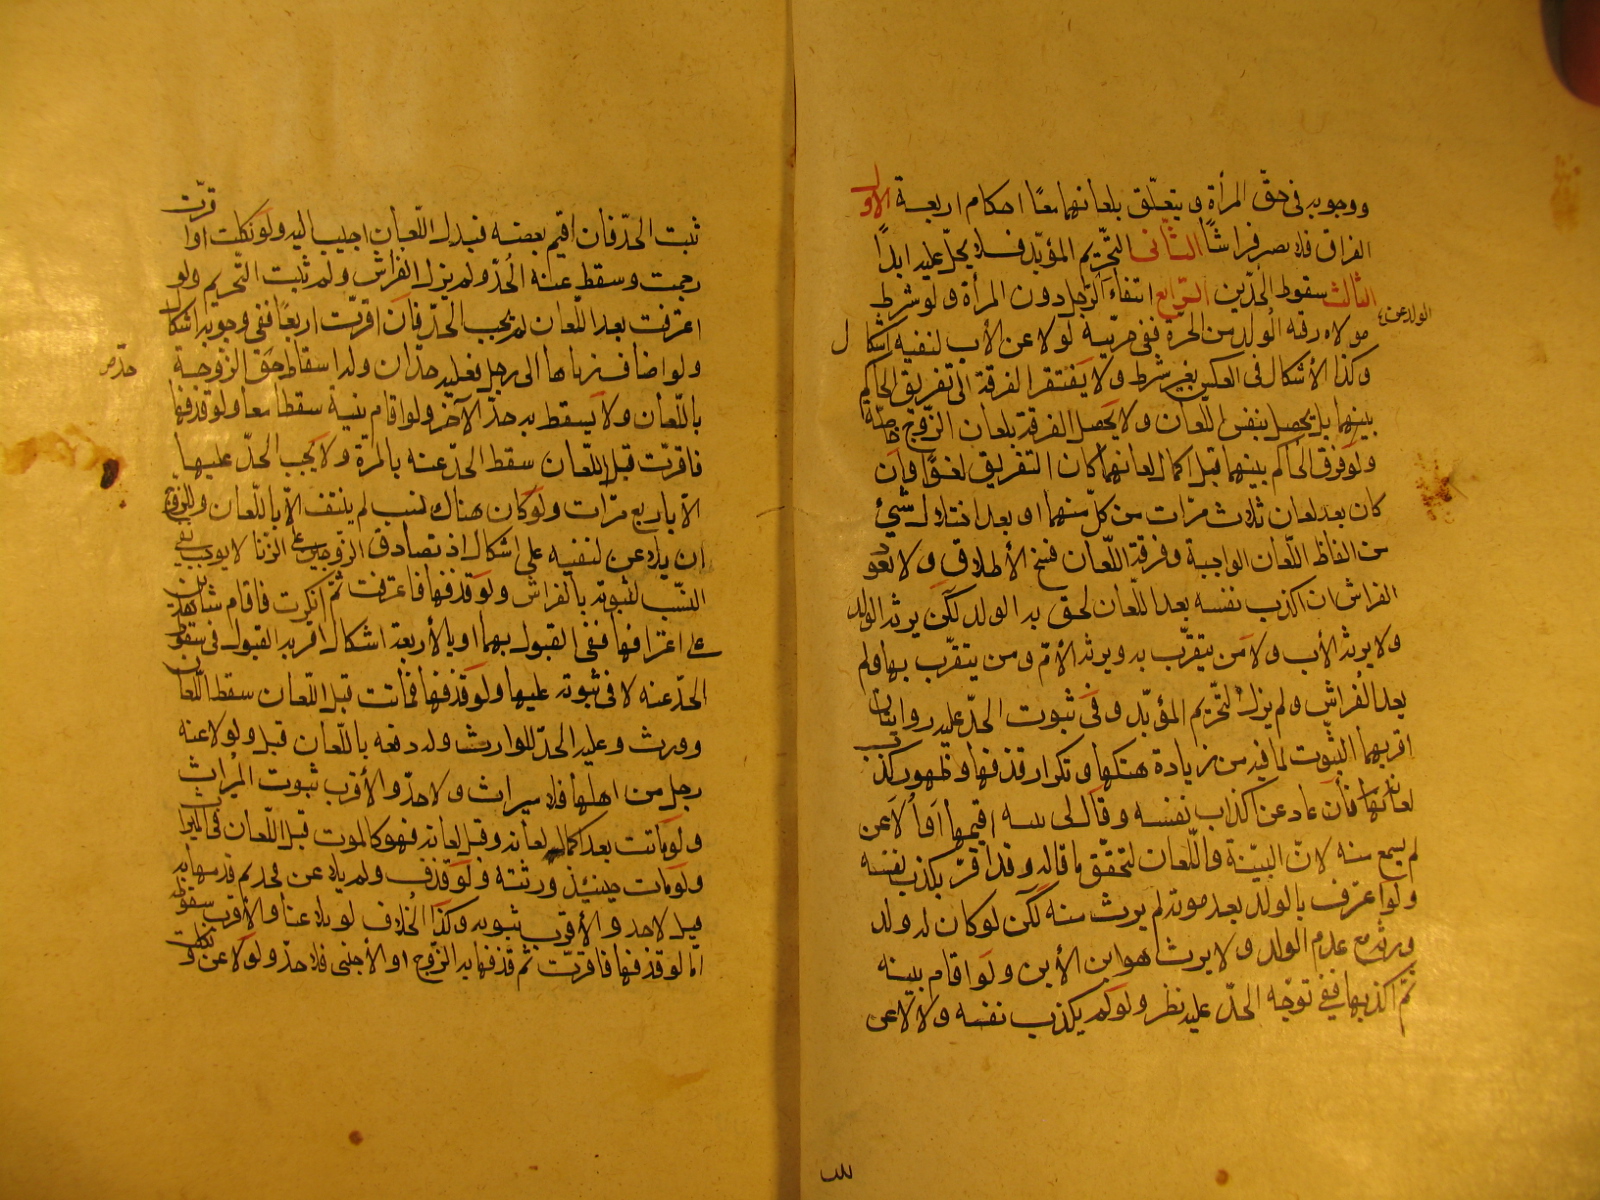 ووجوبه فى حقّ المرأة و يتعلّق بلعانهما معًا احكام اربعة الاول
الفراق فلا يصير فراشًا الثانى التحريم المؤبّد فلا يحلّ عليه ابدًا
الثالث سقوط الحدّين الرّابع انتفاء الرّجل دون المرأة و لو شرط
الولد عن
مولاه رقه الولد من الحرة ففى حريّته لو لاعن الأب لنفيه اشكال
وكذا الأشكال فى العكس بغير شرط ولا يفتقر الفرقة الى تفريق الحاكم
بينهما بل تحصل بنفس اللّعان ولا يحصل الفرقة بلعان الزّوج خاصّة
ولو فرق الحاكم بينهما قبل اكمال لعانهما كان التفريق لغوًا وان
كان بعد لعان ثلاث مرّات من كلّ منهما او بعد اختلال شيئ
من الفاظ اللّعان الواجبة وفرقة اللّعان فسخ لا طلاق ولا تعود
الفراش ان اكذب نفسه بعد اللّعان لحق به الولد لكن يرثه الولد
ولا يرثه الأب ولا من يتقرّب به ويرثه الأمّ ومن يتقرّب بها ولم
يعد الفراش ولم يزل التحريم المؤبّد وفى ثبوت الحدّ عليه روايتان
اقربهما الثبوت لما فيه من زيادة هتكها وتكرار قذفها وظهور كذب
لعانها فأن عاد عن اكذاب نفسه وقال لى بينه اقيمها او ألاعن
لم يسمع منه لانّ البيّنة واللّعان لتحقّق ما قاله وقد اقرّ بكذب نفسه
ولو اعترف بالولد بعد موته لم يرث منه لكن لو كان له ولد
ورثه مع عدم الولد ولا يرث هو ابن الأبن ولو اقام بينه
ثمّ اكذبها ففى توجّه الحدّ عليه نظر ولو لم يكذب نفسه ولا لاعن
ثبت الحدّ فان اقيم بعضه فبدل اللّعان اجيب اليه ولو نكلت او اقرّت
رجمت وسقط عنه الحدّ ولم يزل الفراش ولم ثبت التحريم ولو
اعترفت بعد اللّعان لم يجب الحدّ فان اقرّت اربعًا ففى وجوبه اشكال
ولو اضاف زناها الى رجل فعليه حدّان وله اسقاط حق الزّوجة
حدّ
باللّعان ولا يسقط به حدّ الآخر ولو اقام بنية سقطا معا ولو قذفها
فاقرّت قبل اللّعان سقط الحدّ عنه بالمرّة ولا يجب الحدّ عليها
الّا باربع مرّات ولو كان هناك نسب لم ينتف الّا باللّعان وللزّوج
ان يلاعن لنفيه على اشكال اذ تصادق الزّوجين على الزّنا لا يوجب نفى
النّسب لثبوته بالفراش ولو قذفها فاعترفت ثمّ انكرت فاقام شاهدين
على اعترافها ففى القبول بهما او بالأربعة اشكال اقربه القبول فى سقوط
الحدّ عنه لا فى ثبوته عليها ولو قذفها فماتت قبل اللّعان سقط اللّعان
وورث وعليه الحدّ للوارث وله دفعه باللّعان قبل ولو لاعنه
رجل من اهلها فلا ميراث ولا حدّ والأقرب ثبوت الميراث
ولو ماتت بعد اكمال لعانه وقبل لعانها فهو كالموت قبل اللّعان فى الميراث
ولو مات حينئذ ورثته ولو قذف ولم يلاعن فحدّ ثم قذفها به
قيل لا حد و الأقرب ثبوته وكذا الخلاف لو تلاعنا والأقرب سقوطه
امّا لو قذفها فاقرّت ثمّ قذفها به الزّوج او الأجنبى فلا حدّ ولو لاعن و نكلت